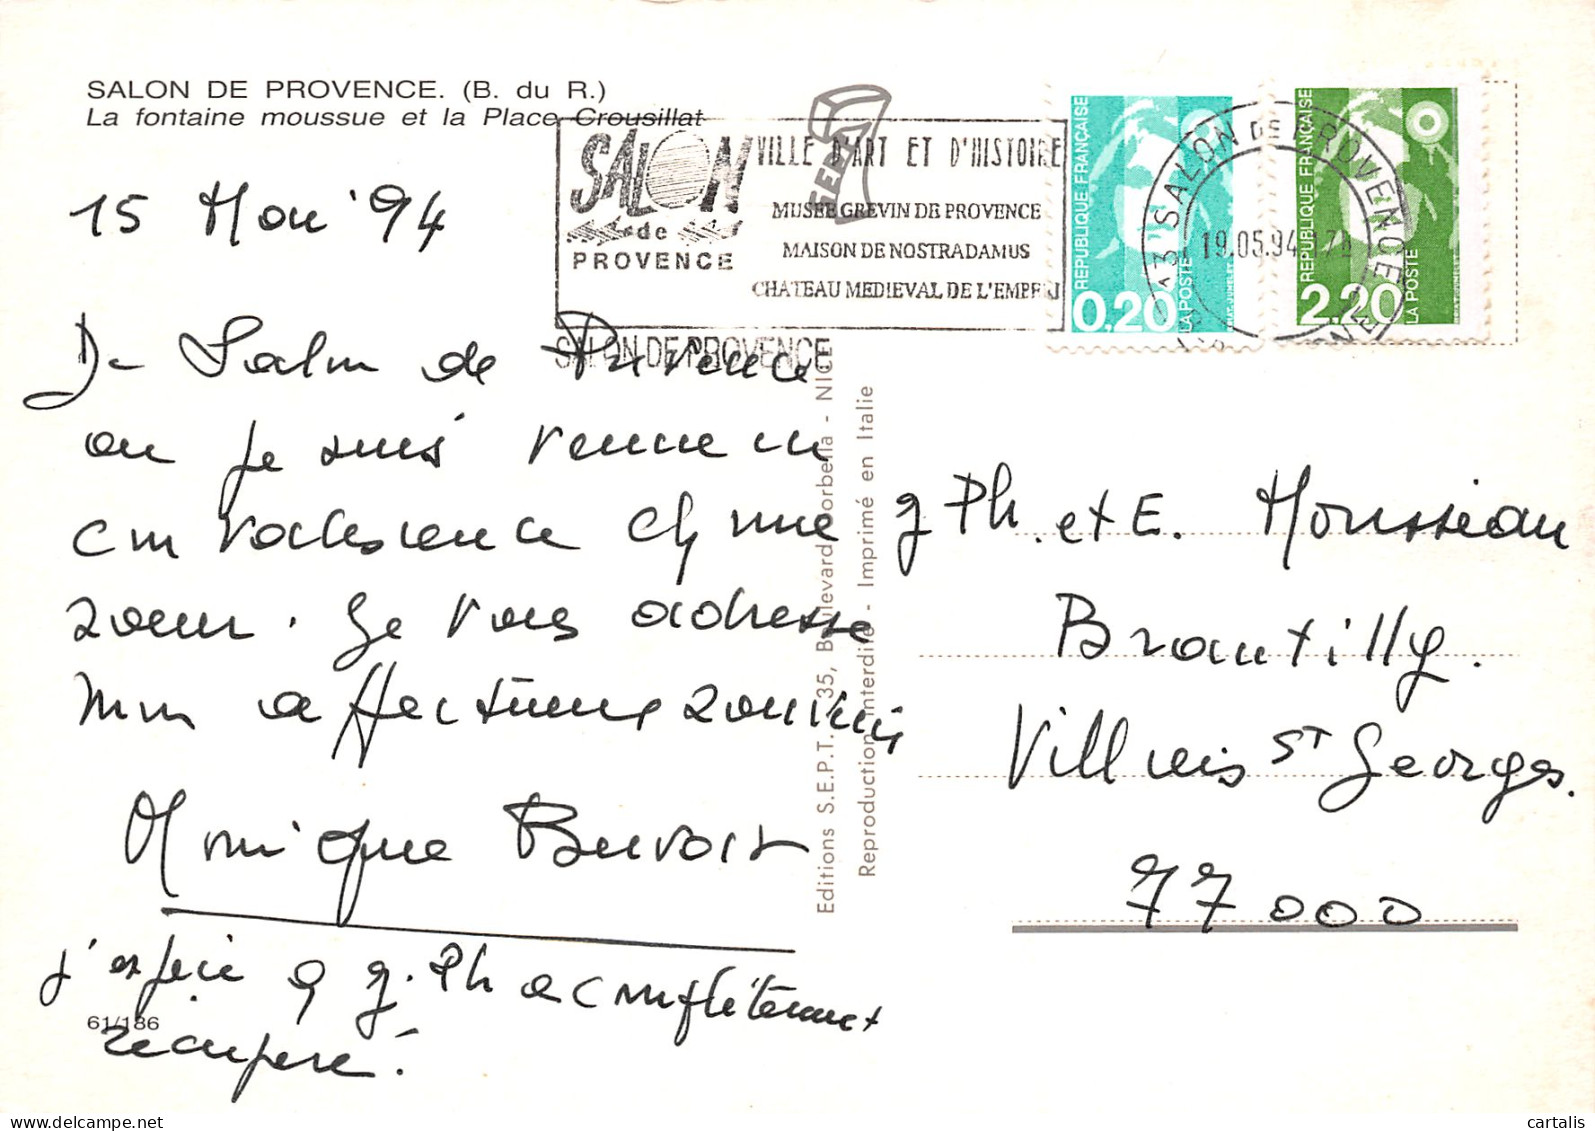 SALON DE PROVENCE. (B. du R.)
La fontaine moussue et la Place Crousillat
SALON
de
PROVENCE
VILLE D'ART ET D'HISTOIRE
MUSEE GREVIN DE PROVENCE
MAISON DE NOSTRADAMUS
CHATEAU MEDIEVAL DE L'EMPERI
SALON DE PROVENCE
REPUBLIQUE FRANÇAISE
0,20
LA POSTE
REPUBLIQUE FRANÇAISE
2,20
LA POSTE
13 SALON DE PROVENCE
19.05.94
15 Mai '94
De Salon de Provence
où je suis venue en
convalescence chez une
sœur. Je vous adresse
mon affectueux souvenir
Monique
j'espère q J. Ph a complètement
récupéré.
61/186
Editions S.E.P.T. - 35, Boulevard Gorbella - NICE
Reproduction interdite - Imprimé en Italie
J Ph. et E. Mousseau
Brantilly.
Villuis St Georges.
77000
cartalis